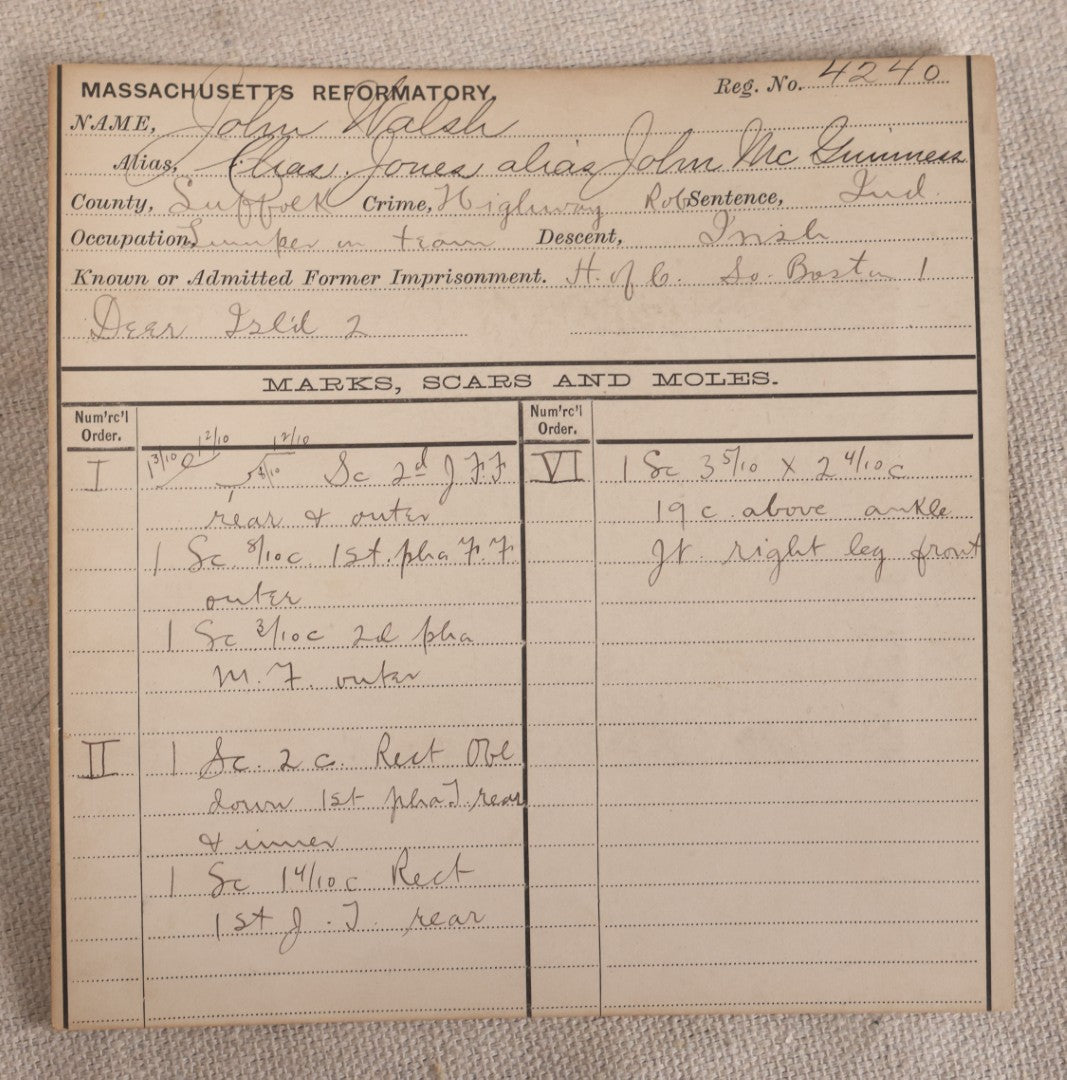 MASSACHUSETTS REFORMATORY. Reg. No. 4240
NAME, John Walsh
Alias, Chas. Jones alias John Mc Guinness
County, Suffolk Crime, Highway Rob Sentence, Ind.
Occupation, Lumper on team Descent, Irish
Known or Admitted Former Imprisonment. H. of C. So. Boston 1
Deer Isl'd 2
MARKS, SCARS AND MOLES.
Num'rc'l Order.
Num'rc'l Order.
1 2/10 1 2/10
I 1 3/10 4/10 Sc 2d J F F
rear & outer
1 Sc 8/10 c. 1st. pha F. F.
outer
1 Sc 3/10 c 2d pha
M. F. outer
II 1 Sc. 2 c. Rect Obl
down 1st pha T rear
& inner
1 Sc 1 4/10 c Rect
1st J. T. rear
VI 1 Sc 3 5/10 x 2 4/10 c
19 c. above ankle
Jt. right leg front